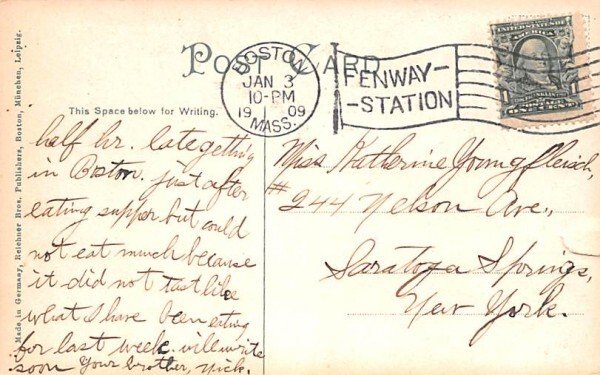 POST CARD
BOSTON
JAN 3
10-PM
19 09
MASS.
FENWAY-
-STATION
UNITED STATES OF AMERICA
1 1
FRANKLIN
This Space below for Writing.
half hr. late getting
in Boston. just after
eating supper but could
not eat much because
it did not tast like
what I have been eating
for last week. will write
soon Your brother, Nick.
Miss Katherine Youngfleisch,
# 244 Nelson Ave.,
Saratoga Springs,
New York.
Made in Germany, Reichner Bros, Publishers, Boston, München, Leipzig.